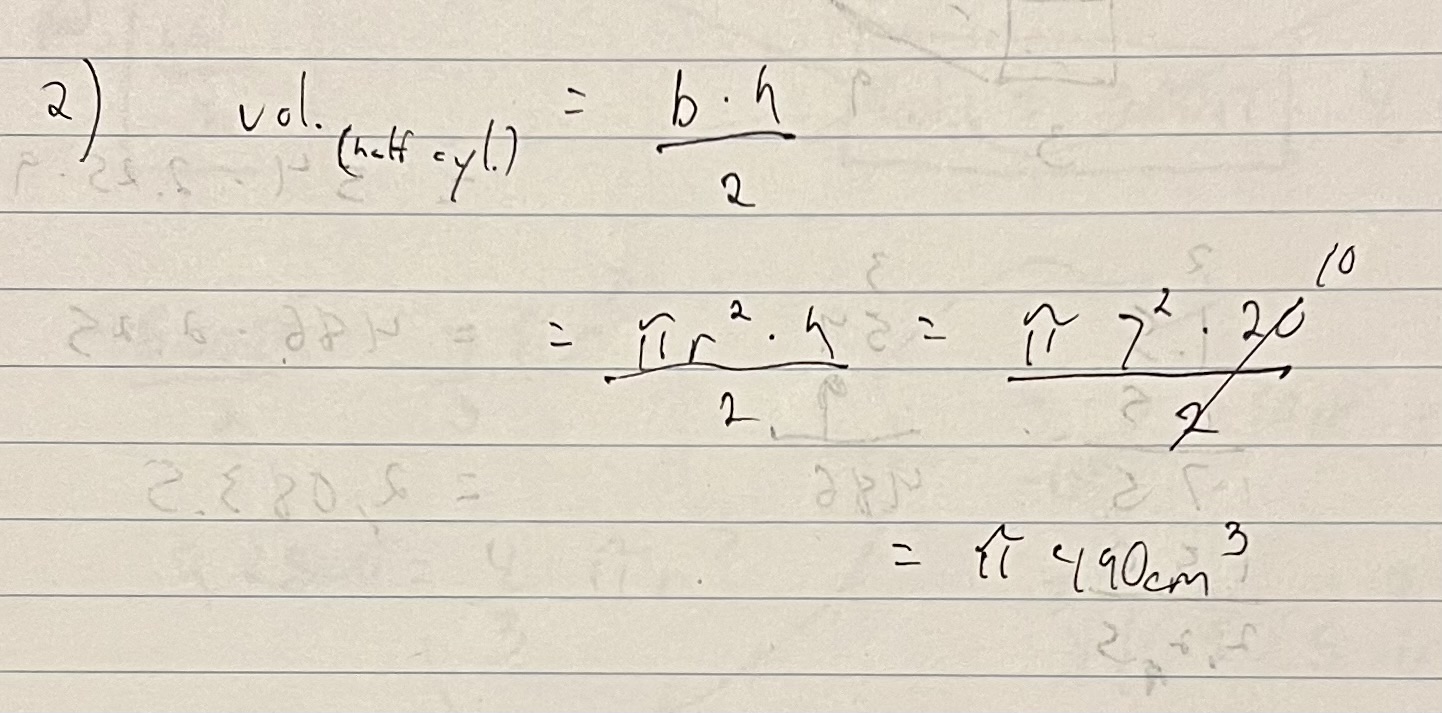 2) vol. (half cyl.) = b · h / 2
= πr² · h / 2 = π 7² · 20 10 / 2
= π 490cm³